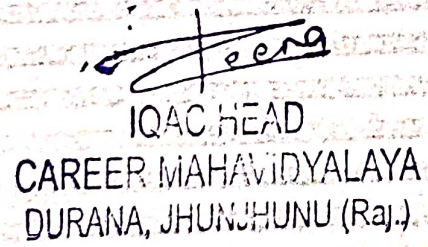 IQAC HEAD
CAREER MAHAVIDYALAYA
DURANA, JHUNJHUNU (Raj.)